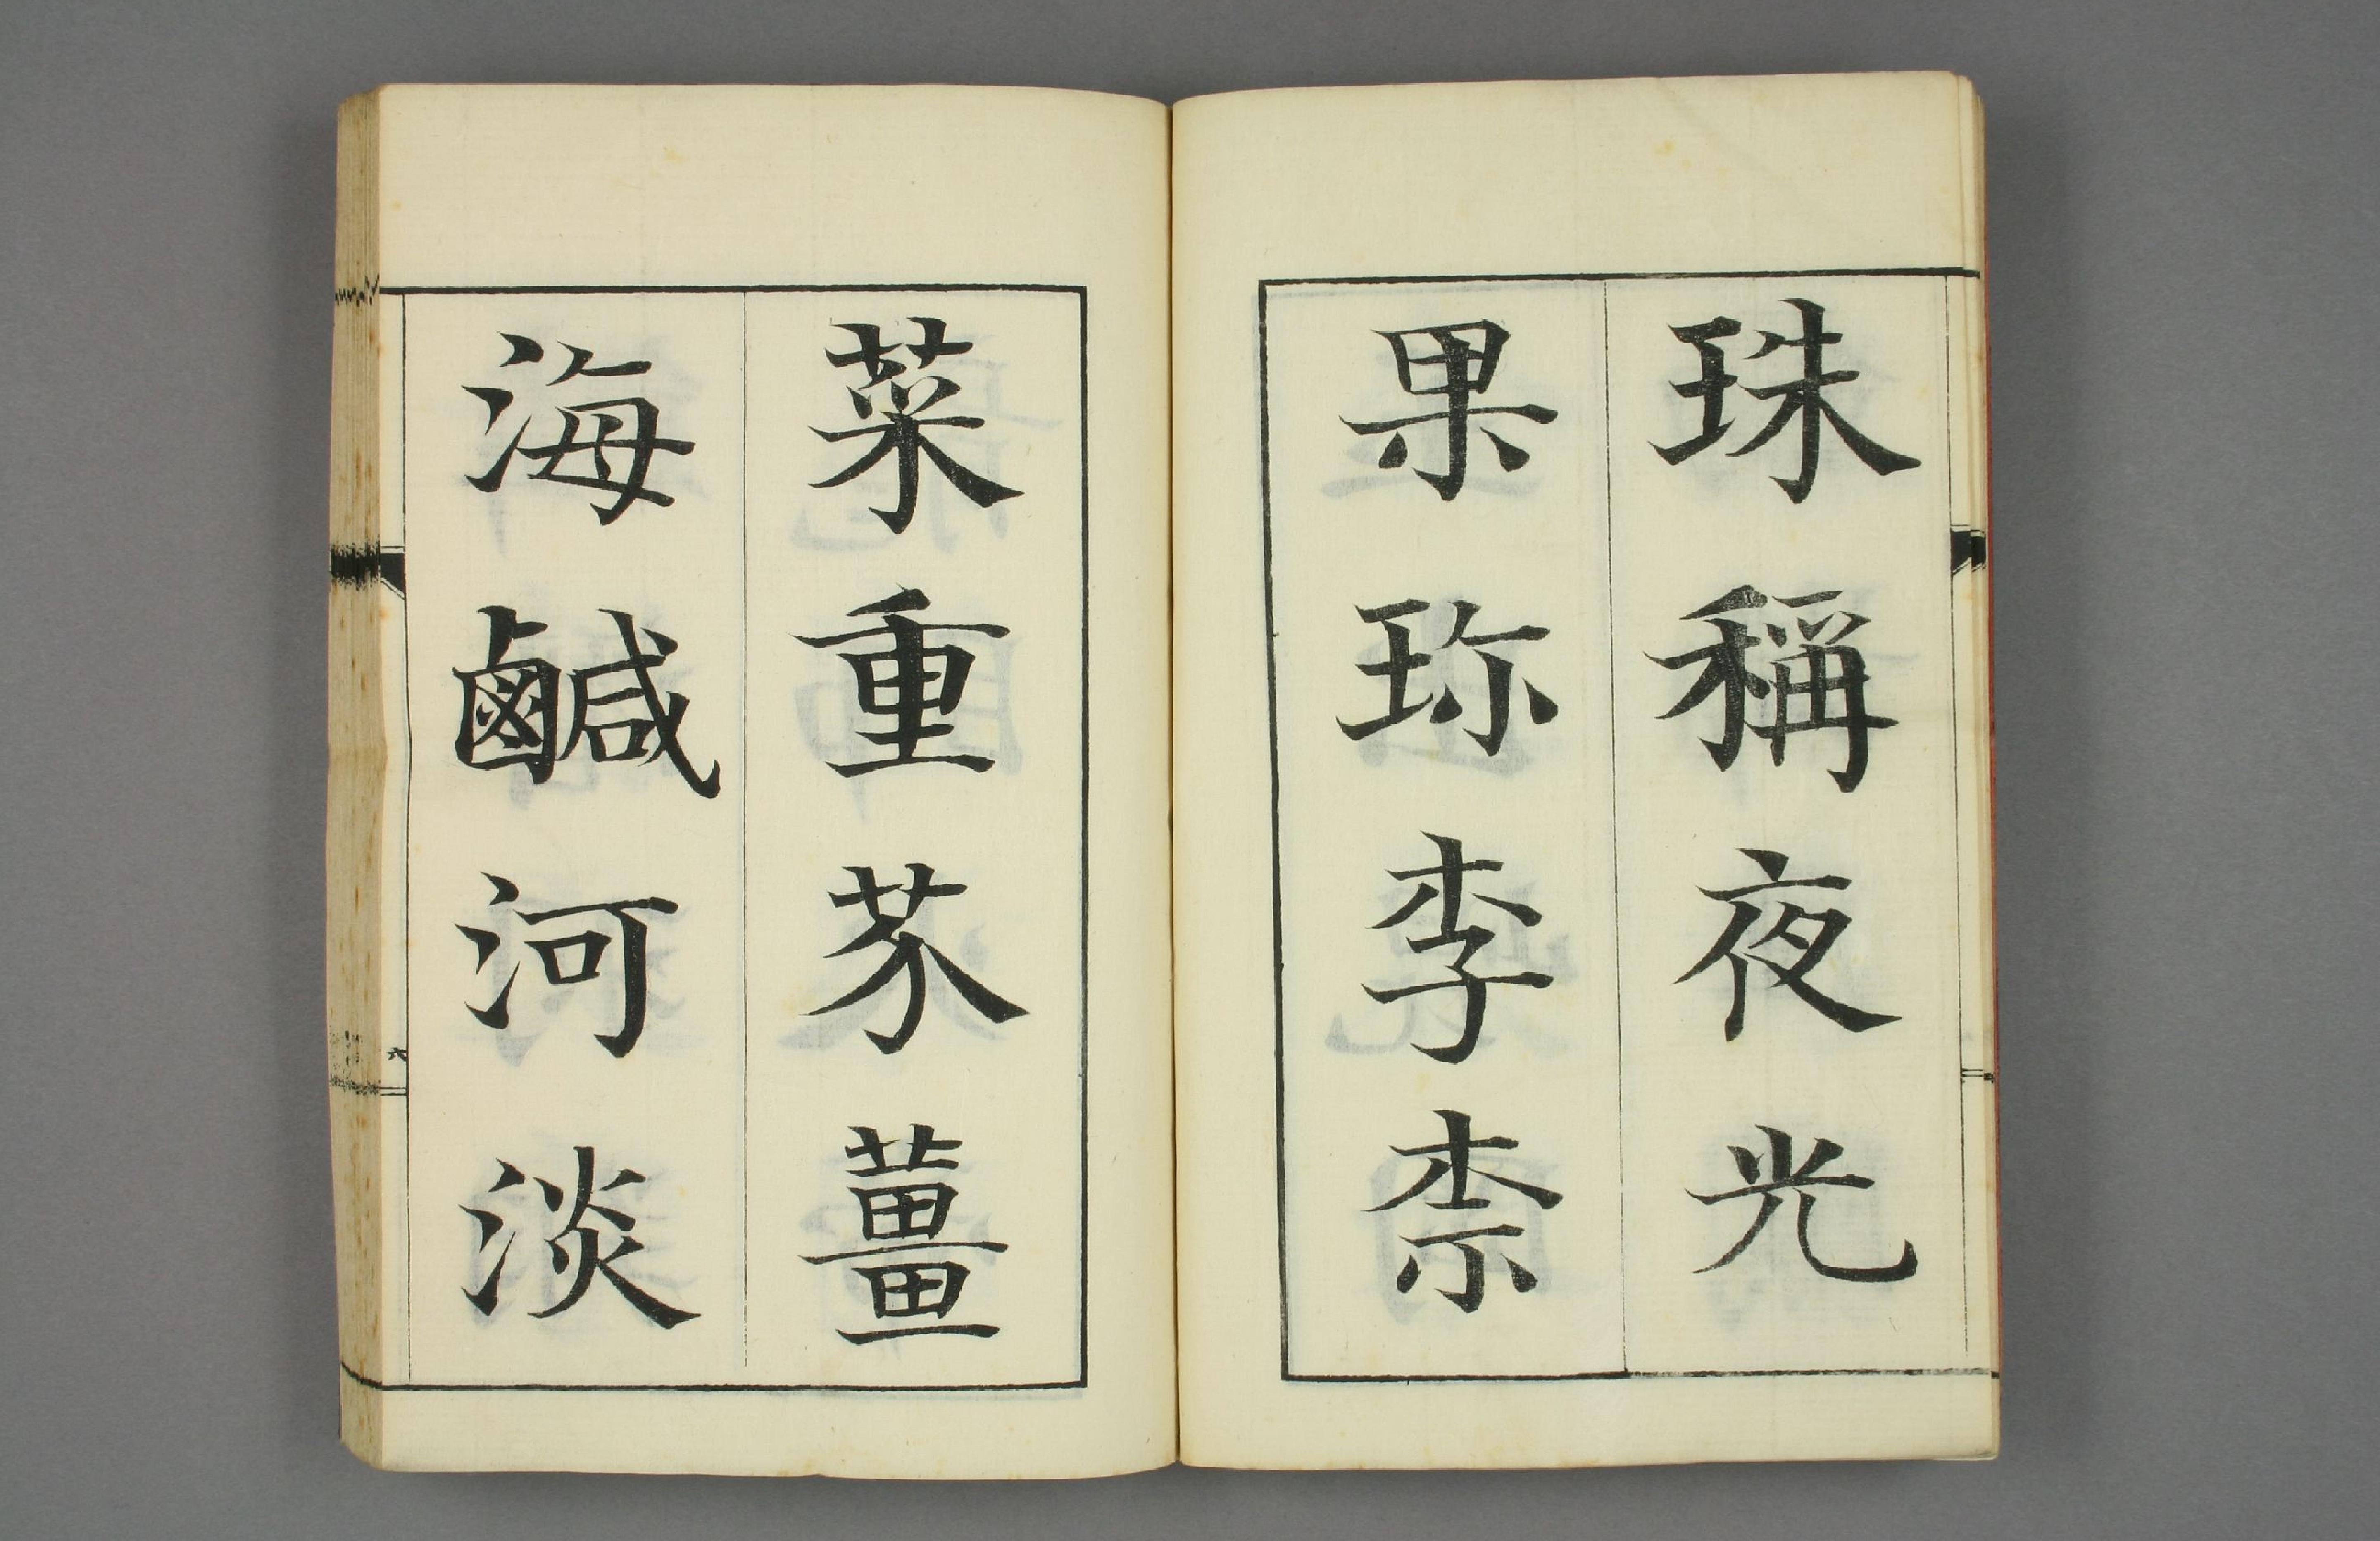 珠稱夜光
果珎李柰
菜重芥薑
海鹹河淡
六